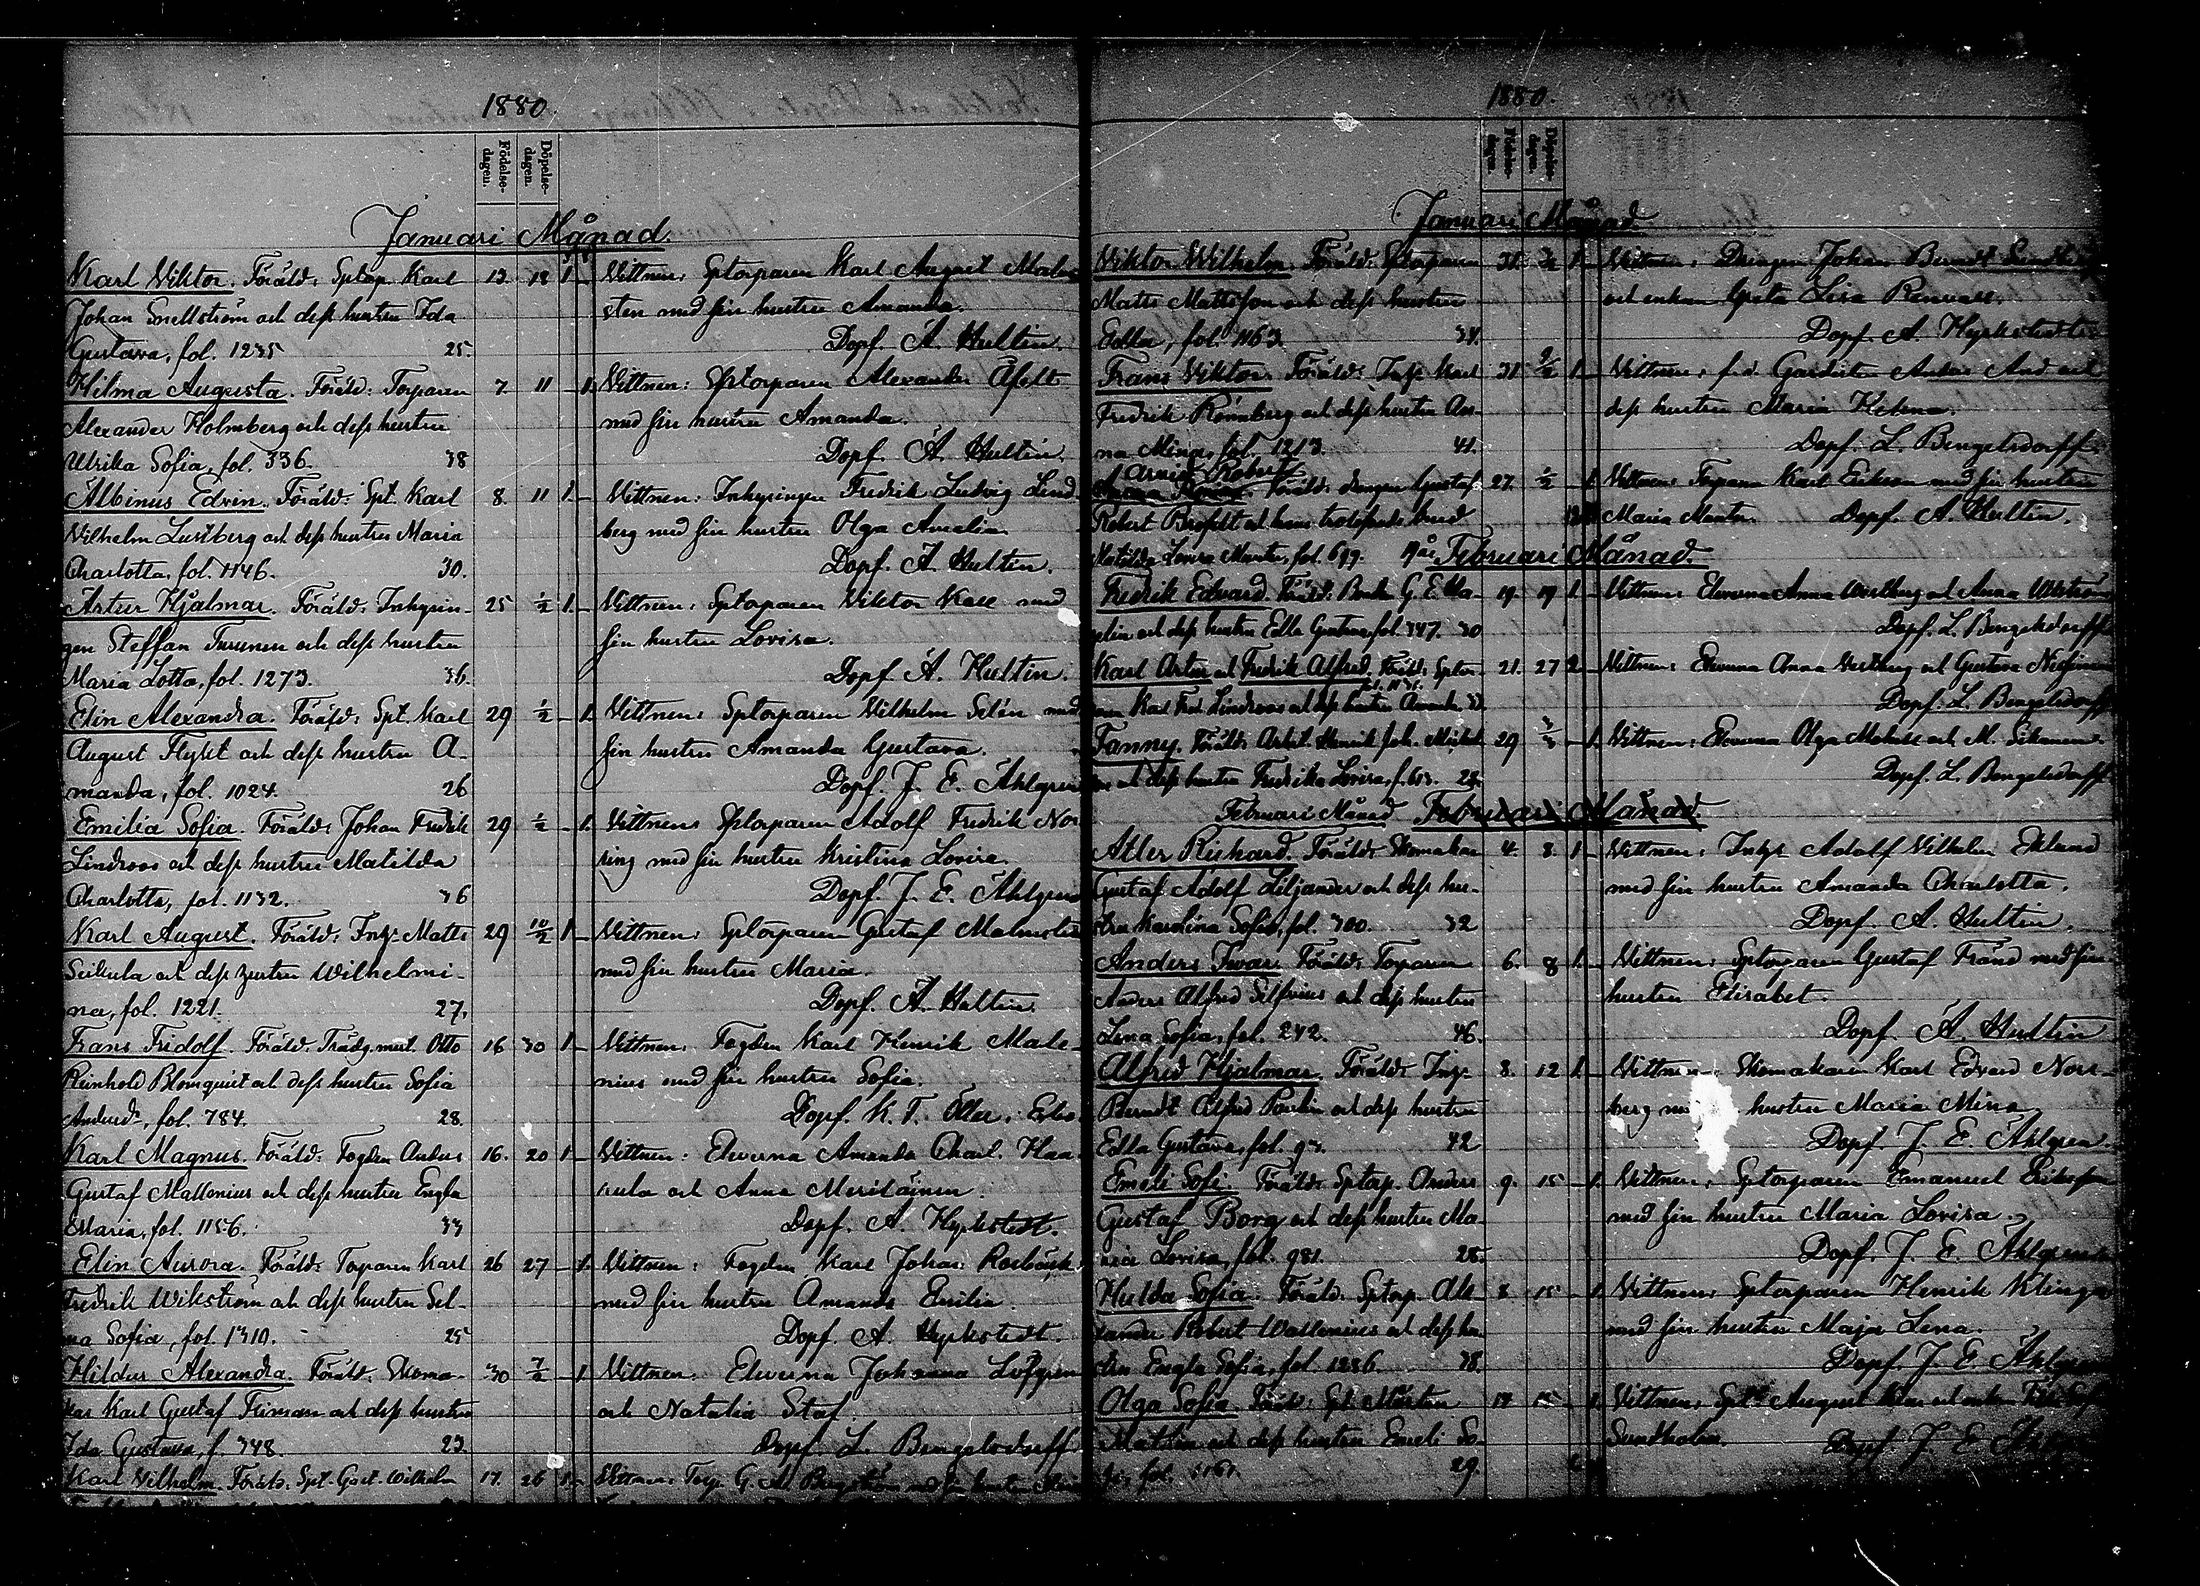 1880
Födelse-dagen.
Döpelse-dagen.
Januari Månad.
Karl Viktor. Föräld: Sptorp. Karl 12 18 1 – Vittnen: Sptorparen Karl August Malm
Johan Snellström och dess hustru Ida sten med sin hustru Amanda.
Gustava, fol. 1235 25. Dopf. A. Hultin.
Hilma Augusta. Föräld: Torparen 7. 11 – 1. Vittnen: Sptorparen Alexander Äfelt
Alexander Holmberg och dess hustru med sin hustru Amanda.
Ulrika Sofia, fol. 336. 38 Dopf. A. Hultin.
Albinus Edvin. Föräld: Spt. Karl 8. 11 1 – Vittnen: Inhysingen Fredrik Ludvig Lind
Vilhelm Lustberg och dess hustru Maria berg med sin hustru Olga Amalia
Charlotta, fol. 1146. 30. Dopf. A. Hultin.
Artur Hjalmar. Föräld: Inhysin- 25 1/2 1 – Vittnen: Sptorparen Viktor Kall med
gen Steffan Turunen och dess hustru sin hustru Lovisa.
Maria Lotta, fol. 1273. 36. Dopf. A. Hultin.
Elin Alexandra. Föräld: Spt. Karl 29 1/2 – 1. Vittnen: Sptorparen Vilhelm Selén med
August Flykt och dess hustru A- sin hustru Amanda Gustava.
manda, fol. 1024. 26 Dopf. J. E. Åhlgren
Emilia Sofia. Föräld: Johan Fredrik 29 1/2 – 1. Vittnen: Sptorparen Adolf Fredrik Nor
Lindroos och dess hustru Matilda ring med sin hustru Kristina Lovisa.
Charlotta, fol. 1132. 36 Dopf. J. E. Åhlgren
Karl August. Föräld: Inhys: Matts 29 10/2 1 – Vittnen: Sptorparen Gustaf Malmsten
Seikula och dess hustru Wilhelmi- med sin hustru Maria.
na, fol. 1221. 27. Dopf. A. Hultin.
Frans Fridolf. Föräld: Trädg.mäst. Otto 16 30 1 – Vittnen: Fogden Karl Henrik Malle-
Reinhold Blomquist och dess hustru Sofia nius med sin hustru Sofia.
fol. 784. 28. Dopf. K. T.
Karl Magnus. Föräld: Fogden Anders 16. 20 1 – Vittnen: Eleverna Amanda Charl. Haa-
Gustaf Mallenius och dess hustru Engla och Anna Meriläinen.
Maria, fol. 1156. 33 Dopf. A. Hyrkstedt.
Elin Aurora. Föräld: Torparen Karl 26 27 – 1. Vittnen: Fogden Karl Johan Rosbäck
Fredrik Wikström och dess hustru Sel- med sin hustru Amanda Emilia.
ma Sofia, fol. 1310. 25 Dopf. A. Hyrkstedt.
Hildur Alexandra. Föräld: Skoma- 30 7/2 – 1. Vittnen: Eleverna Johanna Löfgren
kar Karl Gustaf Friman och dess hustru och Natalia Staf.
Ida Gustava, f. 348. 23. Dopf. L. Bengelsdorff
Karl Vilhelm. Föräld: Spt. Gust. Wilhelm 17. 26 1 – Vittnen: Torp. G. A. Bergström med sin hustru
1880.
Födelse-dagen.
Döpelse-dagen.
Januari Månad.
Viktor Wilhelm. Föräld: Sptorparen 31. 1 – Vittnen: Drängen Johan Berndt
Matts Mattsson och dess hustru och enkan Greta Lisa Renvall.
Edla, fol. 1163. 34. Dopf. A. Hyrkstedt
Frans Viktor. Föräld: Inhys Karl 31 2/2 1 – Vittnen: f.d. Gardisten And och
Fredrik Rönnberg och dess hustru An- dess hustru Maria Helena.
na Mina, fol. 1213. 41. Dopf. L. Bengelsdorff
Arvid Robert
Föräld: drengen Gustaf 27. 1/2 – 1. Vittnen: Torparen Karl Erikson med sin hustru
Robert Brofeldt och hans trolofvade brud Maria Dopf. A. Hultin.
Matilda Lovisa fol. 699. Februari Månad.
Fredrik Edvard. Föräld: G. E. Ha- 19. 19 1 – Vittnen: Eleverna Anna Westberg och Anna
och dess hustru Edla Gustava, fol. 347. 30 Dopf. L. Bengelsdorff
Karl Artur och Fredrik Alfred. Föräld: Sptor- 21. 27 2 – Vittnen: Eleverna Anna Westberg och Gustava
fol. 1136.
Karl Fred. Lindroos och dess hustru Amanda Dopf. L. Bengelsdorff
Fanny. Föräld: Arbet. Henrik Joh. 29 3/3 – 1. Vittnen: Eleverna Olga och M.
och dess hustru Fredrika Lovisa, 28. Dopf. L. Bengelsdorff
Februari Månad Februari Månad.
Atler Rickard. Föräld: Skomakar 4. 8. 1 – Vittnen: Inhys Adolf Vilhelm Eklund
Gustaf Adolf Liljander och dess hu- med sin hustru Amanda Charlotta.
stru Karolina Sofia, fol. 300. 32 Dopf. A. Hultin.
Anders Ivar. Föräld: Torparen 6. 8 1 – Vittnen: Sptorparen Gustaf Fränd med sin
Anders Alfred Silfvius och dess hustru hustru Elisabet.
Lena Sofia, fol. 242. 46. Dopf. A. Hultin
Alfred Hjalmar. Föräld: Inhys 8. 12 1 – Vittnen: Skomakaren Karl Edvard Norr-
Berndt Alfred Paulin och dess hustru berg hustru Maria Mina
Edla Gustava, fol. 93. 42 Dopf. J. E. Åhlgren.
Emeli Sofi. Föräld: Sptorp. Anders 9. 15 – 1. Vittnen: Sptorparen Emanuel Eriksson
Gustaf Borg och dess hustru Ma- med sin hustru Maria Lovisa.
ria Lovisa, fol. 981. 28. Dopf. J. E. Åhlgren
Hulda Sofia. Föräld: Sptorp. Alex- 8 15 – 1. Vittnen: Sptorparen Henrik Klinga
ander Robert Wallenius och dess hu- med sin hustru Maja Lena.
stru Engla Sofia, fol. 1286. 38. Dopf. J. E. Åhlgren
Olga Sofia. Föräld: Spt. Mårten 15 – 1. Vittnen: August och enkan
Mattlin och dess hustru Emeli So- Sundholm. Dopf. J. E.
fol. 1161. 29.